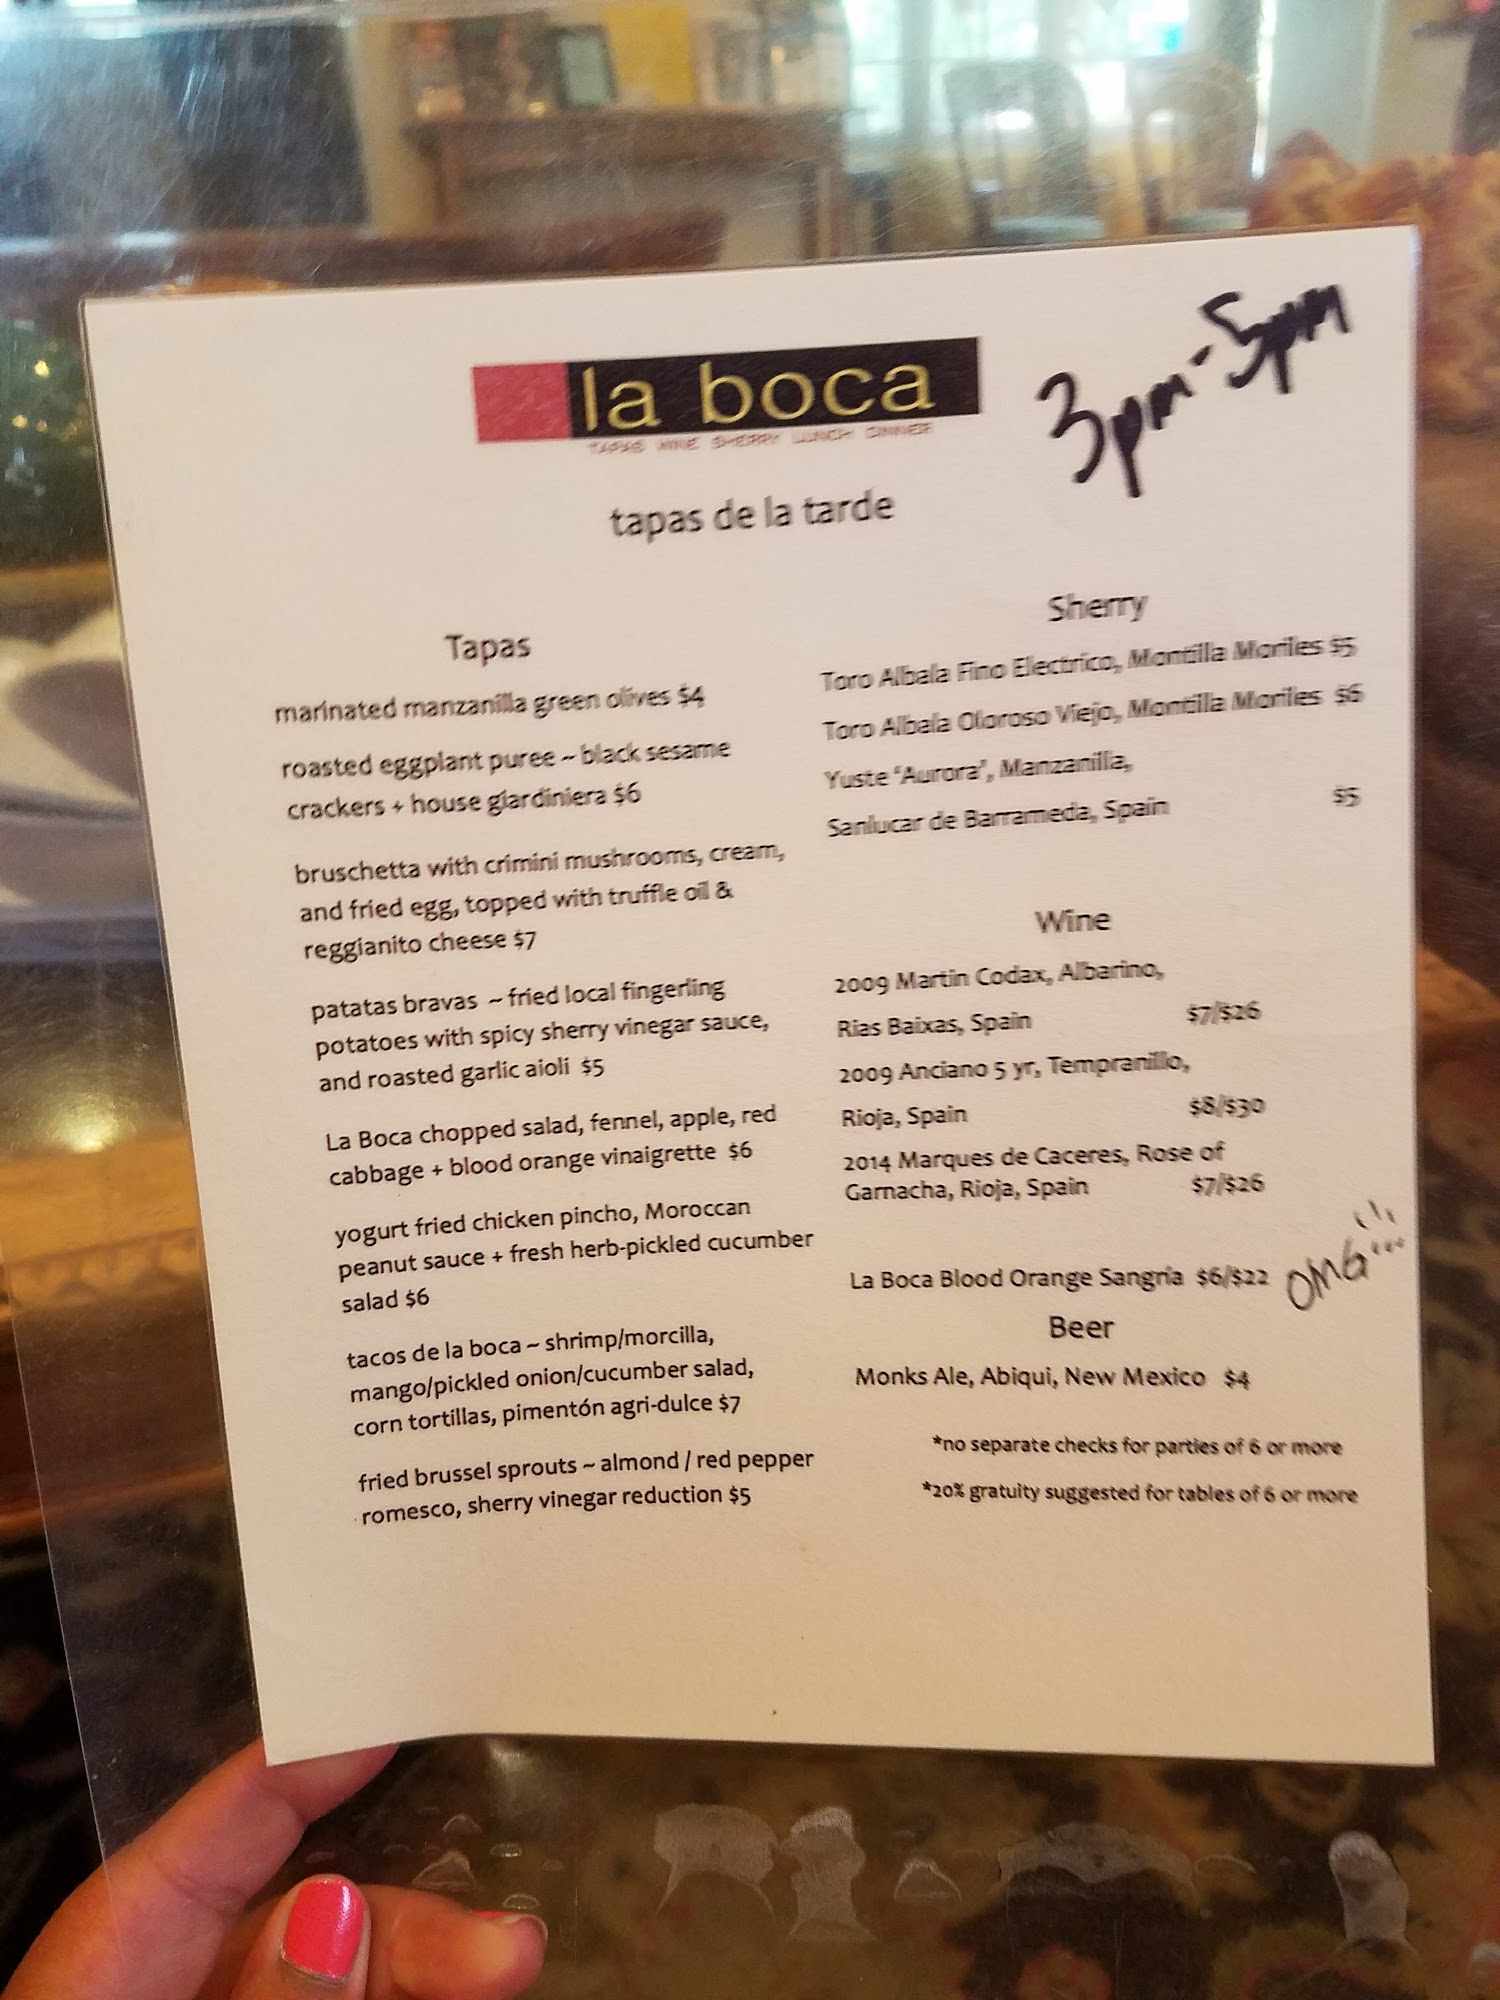 la boca
TAPAS WINE SHERRY LUNCH DINNER
3pm-5pm
tapas de la tarde
Tapas
marinated manzanilla green olives $4
roasted eggplant puree ~ black sesame
crackers + house giardiniera $6
bruschetta with crimini mushrooms, cream,
and fried egg, topped with truffle oil &
reggianito cheese $7
patatas bravas ~ fried local fingerling
potatoes with spicy sherry vinegar sauce,
and roasted garlic aioli $5
La Boca chopped salad, fennel, apple, red
cabbage + blood orange vinaigrette $6
yogurt fried chicken pincho, Moroccan
peanut sauce + fresh herb-pickled cucumber
salad $6
tacos de la boca ~ shrimp/morcilla,
mango/pickled onion/cucumber salad,
corn tortillas, pimentón agri-dulce $7
fried brussel sprouts ~ almond / red pepper
romesco, sherry vinegar reduction $5
Sherry
Toro Albala Fino Electrico, Montilla Moriles $5
Toro Albala Oloroso Viejo, Montilla Moriles $6
Yuste 'Aurora', Manzanilla,
Sanlucar de Barrameda, Spain $5
Wine
2009 Martin Codax, Albarino,
Rias Baixas, Spain $7/$26
2009 Anciano 5 yr, Tempranillo,
Rioja, Spain $8/$30
2014 Marques de Caceres, Rose of
Garnacha, Rioja, Spain $7/$26
La Boca Blood Orange Sangria $6/$22 OMG!!!
Beer
Monks Ale, Abiqui, New Mexico $4
*no separate checks for parties of 6 or more
*20% gratuity suggested for tables of 6 or more